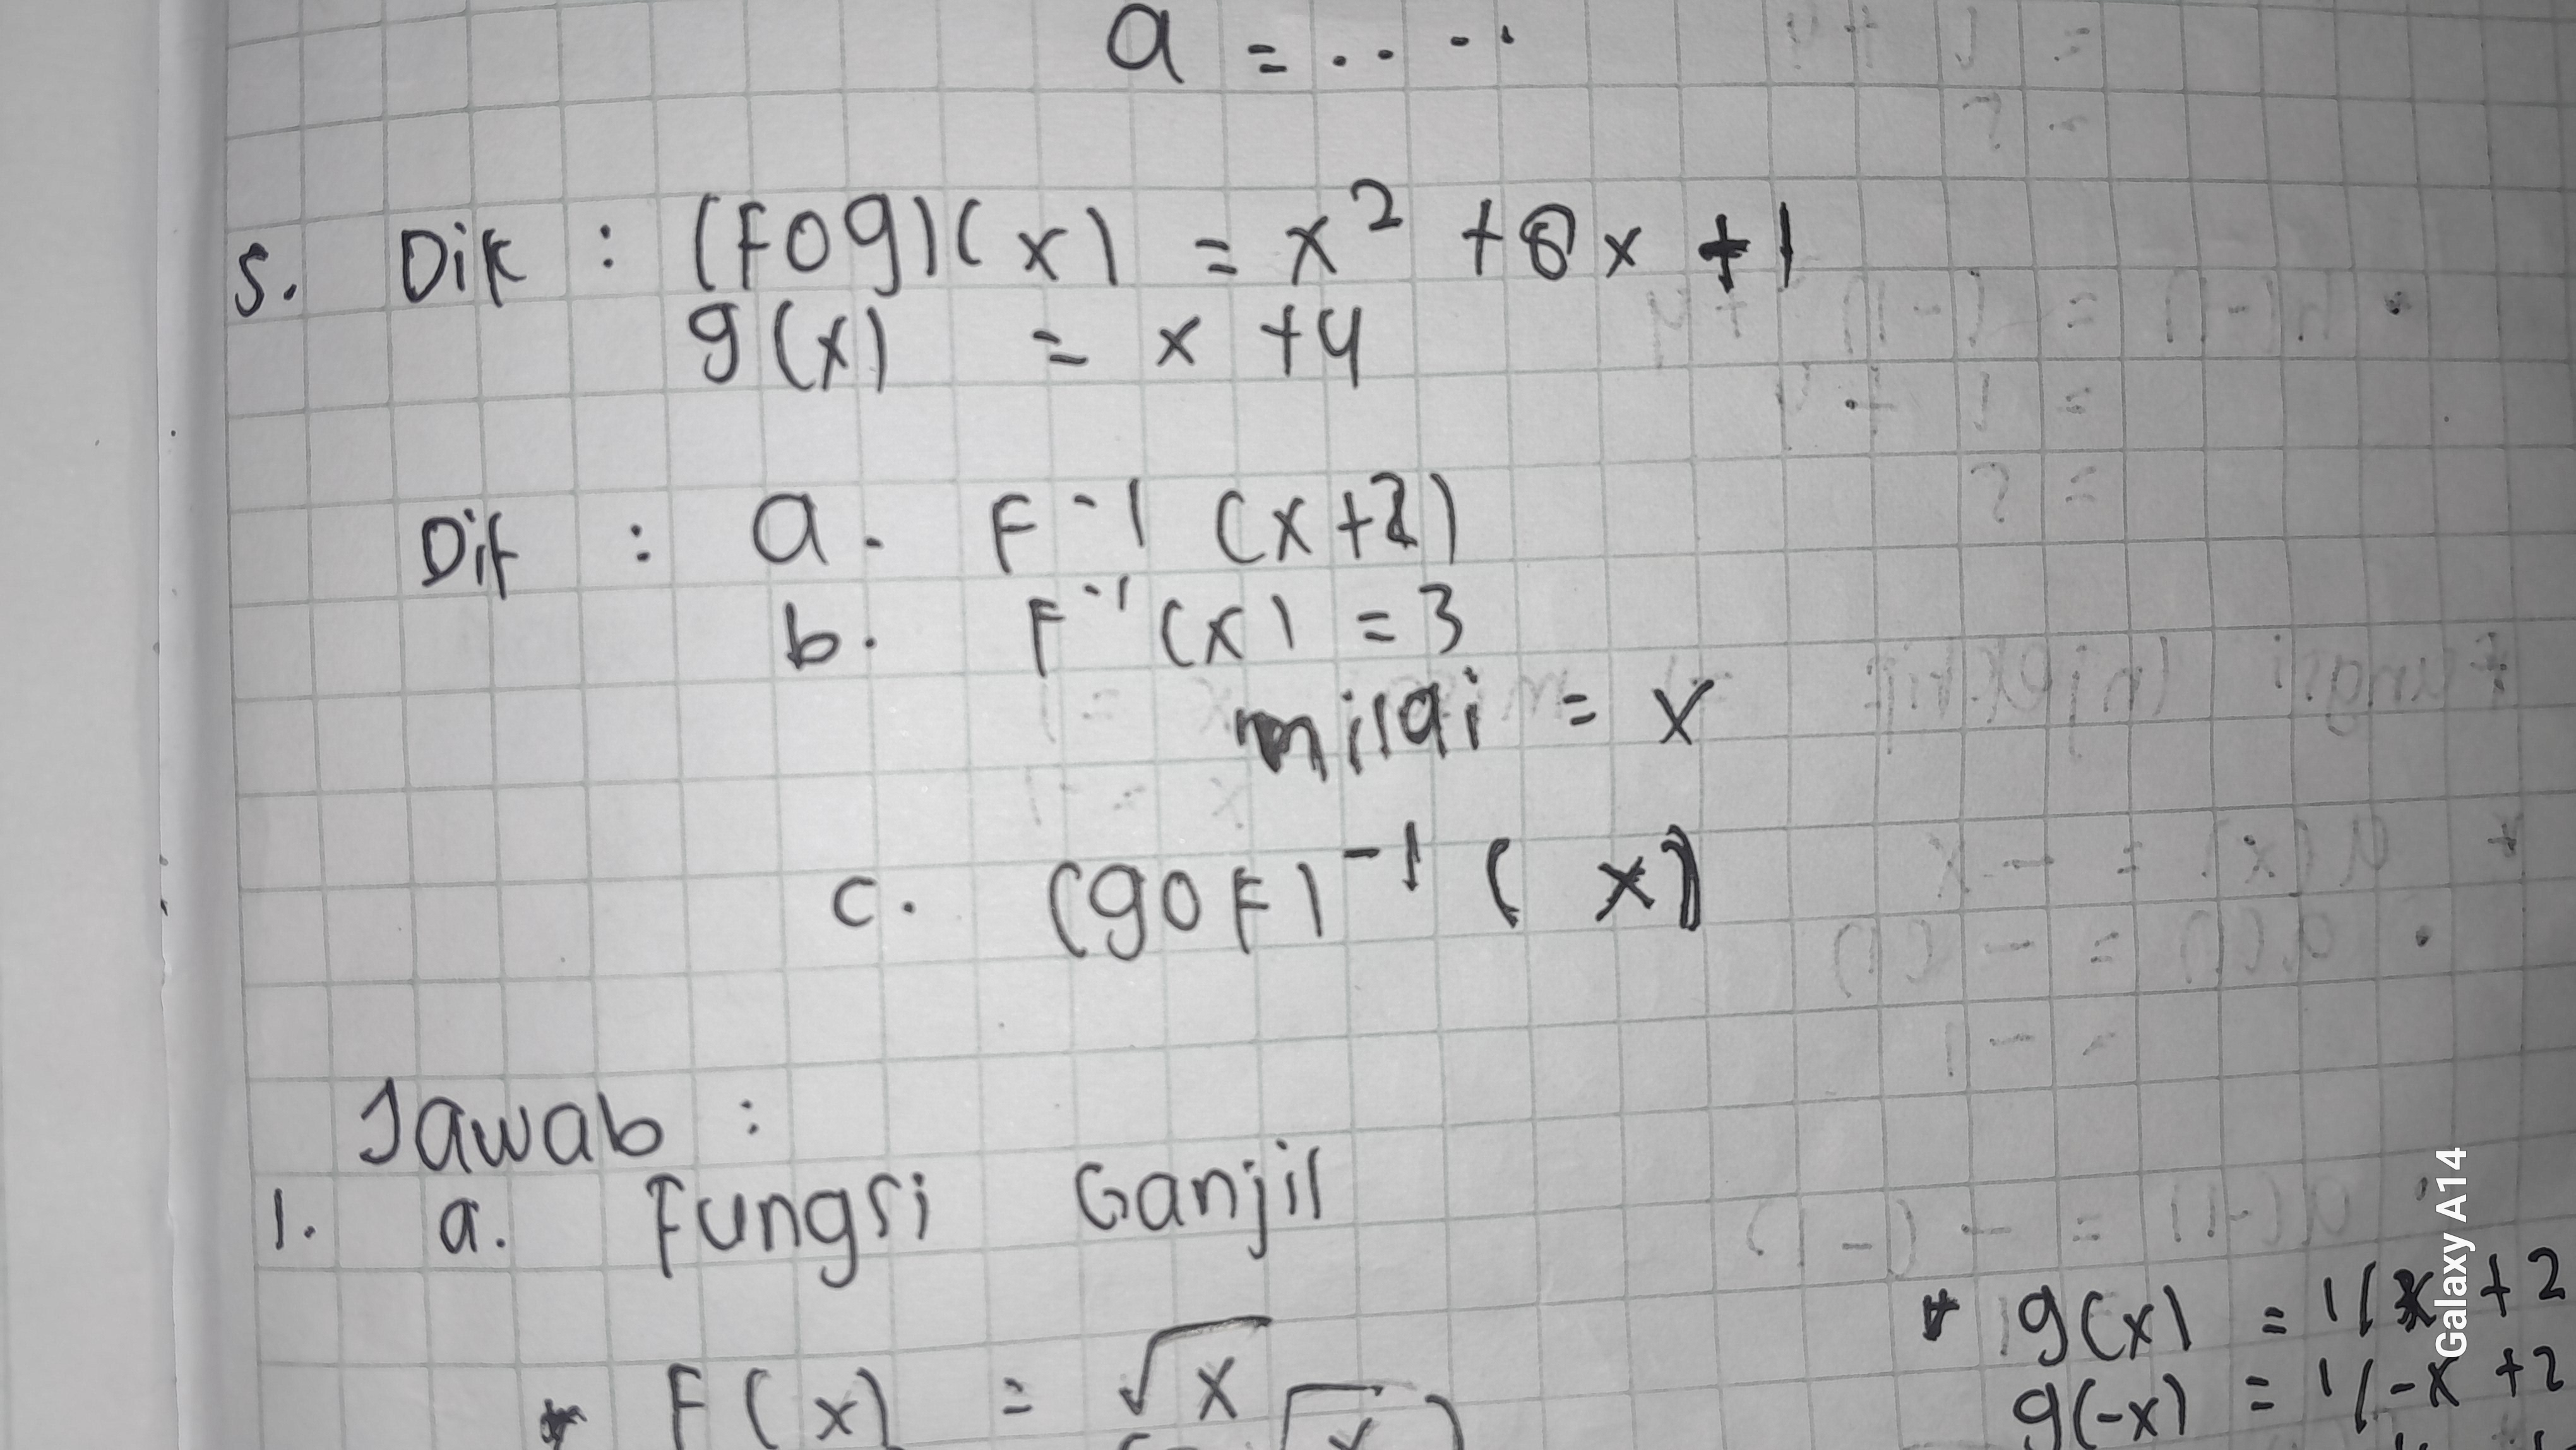 a = ....
5. Dik : (Fog)(x) = x² + 8x + 1
g(x) = x + 4
Dit : a. F⁻¹ (x+2)
b. F⁻¹ (x) = 3
nilai = x
c. (goF)⁻¹ (x)
Jawab :
1. a. Fungsi Ganjil
* F(x) = √x
* g(x) = 1/x + 2
g(-x) = 1/-x + 2
Galaxy A14